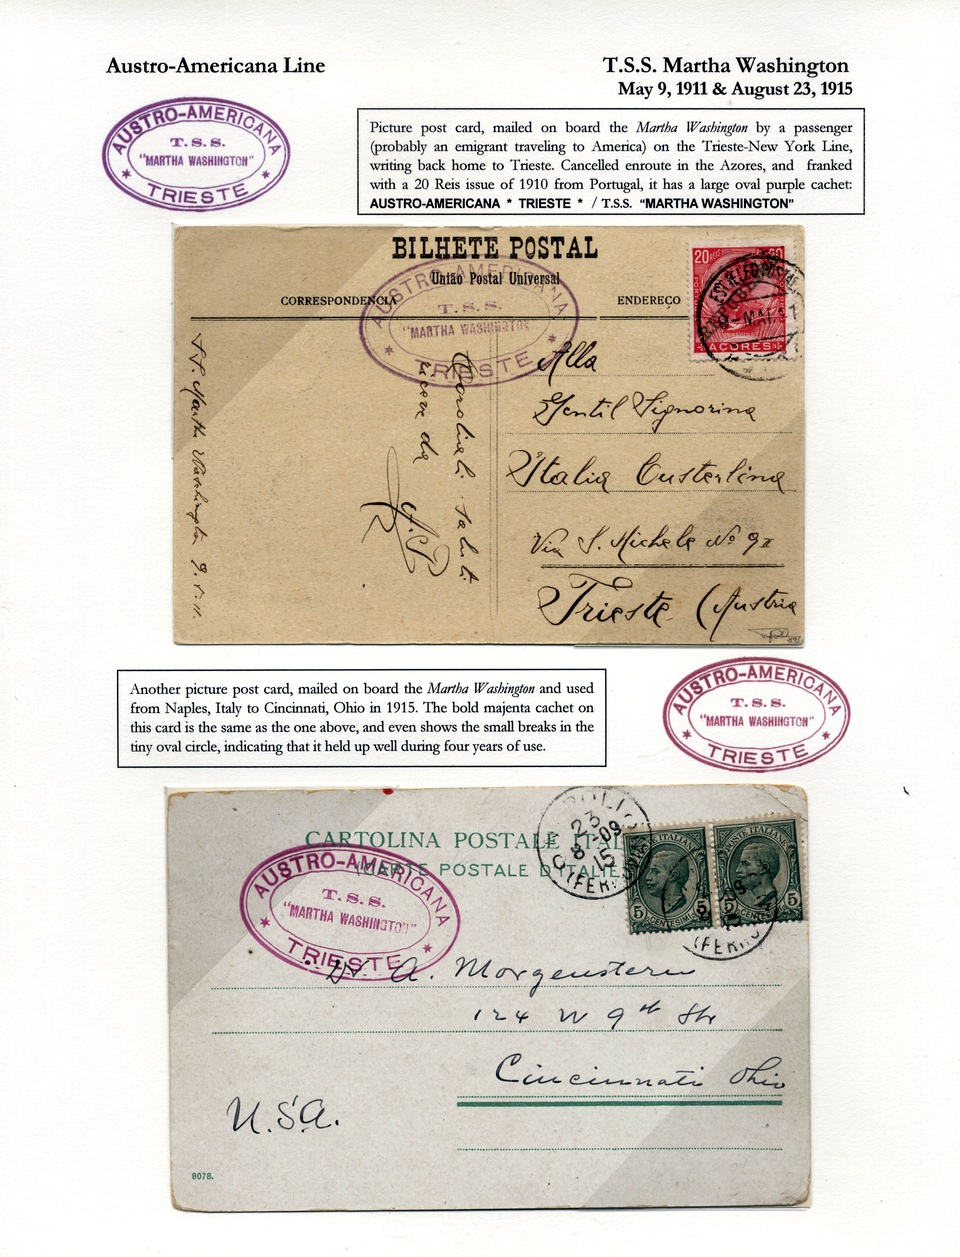 Austro-Americana Line
T.S.S. Martha Washington
May 9, 1911 & August 23, 1915
AUSTRO-AMERICANA
T. S. S.
"MARTHA WASHINGTON"
* TRIESTE *
Picture post card, mailed on board the Martha Washington by a passenger
(probably an emigrant traveling to America) on the Trieste-New York Line,
writing back home to Trieste. Cancelled enroute in the Azores, and franked
with a 20 Reis issue of 1910 from Portugal, it has a large oval purple cachet:
AUSTRO-AMERICANA * TRIESTE * / T.S.S. "MARTHA WASHINGTON"
BILHETE POSTAL
União Postal Universal
CORRESPONDENCIA
ENDEREÇO
AUSTRO-AMERICANA
T. S. S.
"MARTHA WASHINGTON"
* TRIESTE *
20 REIS 20
AÇORES
Alla
Gentil Signorina
Italia Custerlina
Via S. Michele No 9 II
Trieste (Austria
saluti
riceva da
S.S. Martha Washington 9.V.11.
Another picture post card, mailed on board the Martha Washington and used
from Naples, Italy to Cincinnati, Ohio in 1915. The bold majenta cachet on
this card is the same as the one above, and even shows the small breaks in the
tiny oval circle, indicating that it held up well during four years of use.
AUSTRO-AMERICANA
T. S. S.
"MARTHA WASHINGTON"
* TRIESTE *
CARTOLINA POSTALE ITAL
(CARTE POSTALE D'ITALIE
AUSTRO-AMERICANA
T. S. S.
"MARTHA WASHINGTON"
* TRIESTE *
23
8-09
15
(FERR
POSTE ITALIANE
5 CENTESIMI 5
POSTE ITALIANE
5 CENTESIMI 5
(FERR
Dr A. Morgenstern
124 W 9th Str
Cincinnati Ohio
U.S.A.
8078.